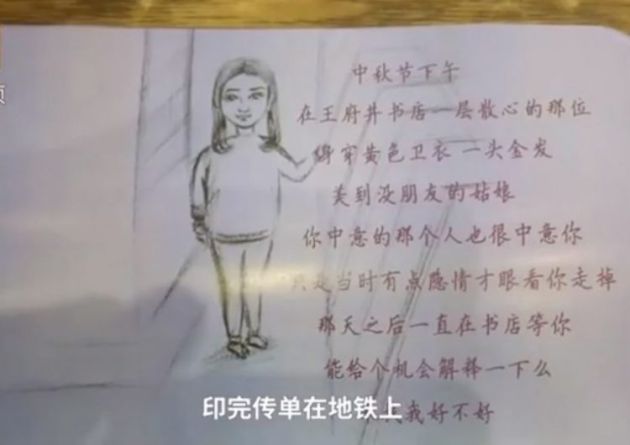 中秋节下午
在王府井书店一层散心的那位
身穿黄色卫衣 一头金发
美到没朋友的姑娘
你中意的那个人也很中意你
只是当时有点隐情才眼看你走掉
那天之后一直在书店等你
能给个机会解释一下么
我好不好
印完传单在地铁上